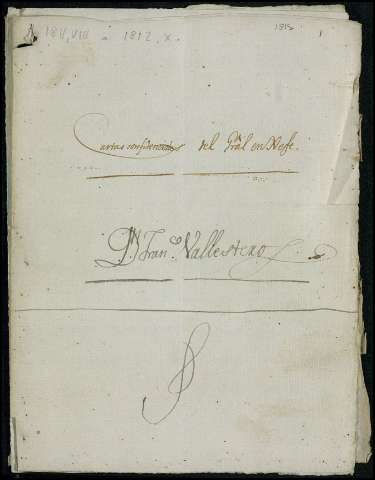 1811, VIII - 1812, X.
1812
1
Cartas confidenciales del Grāl en Xefe.
Dn. Franco. Vallesteros